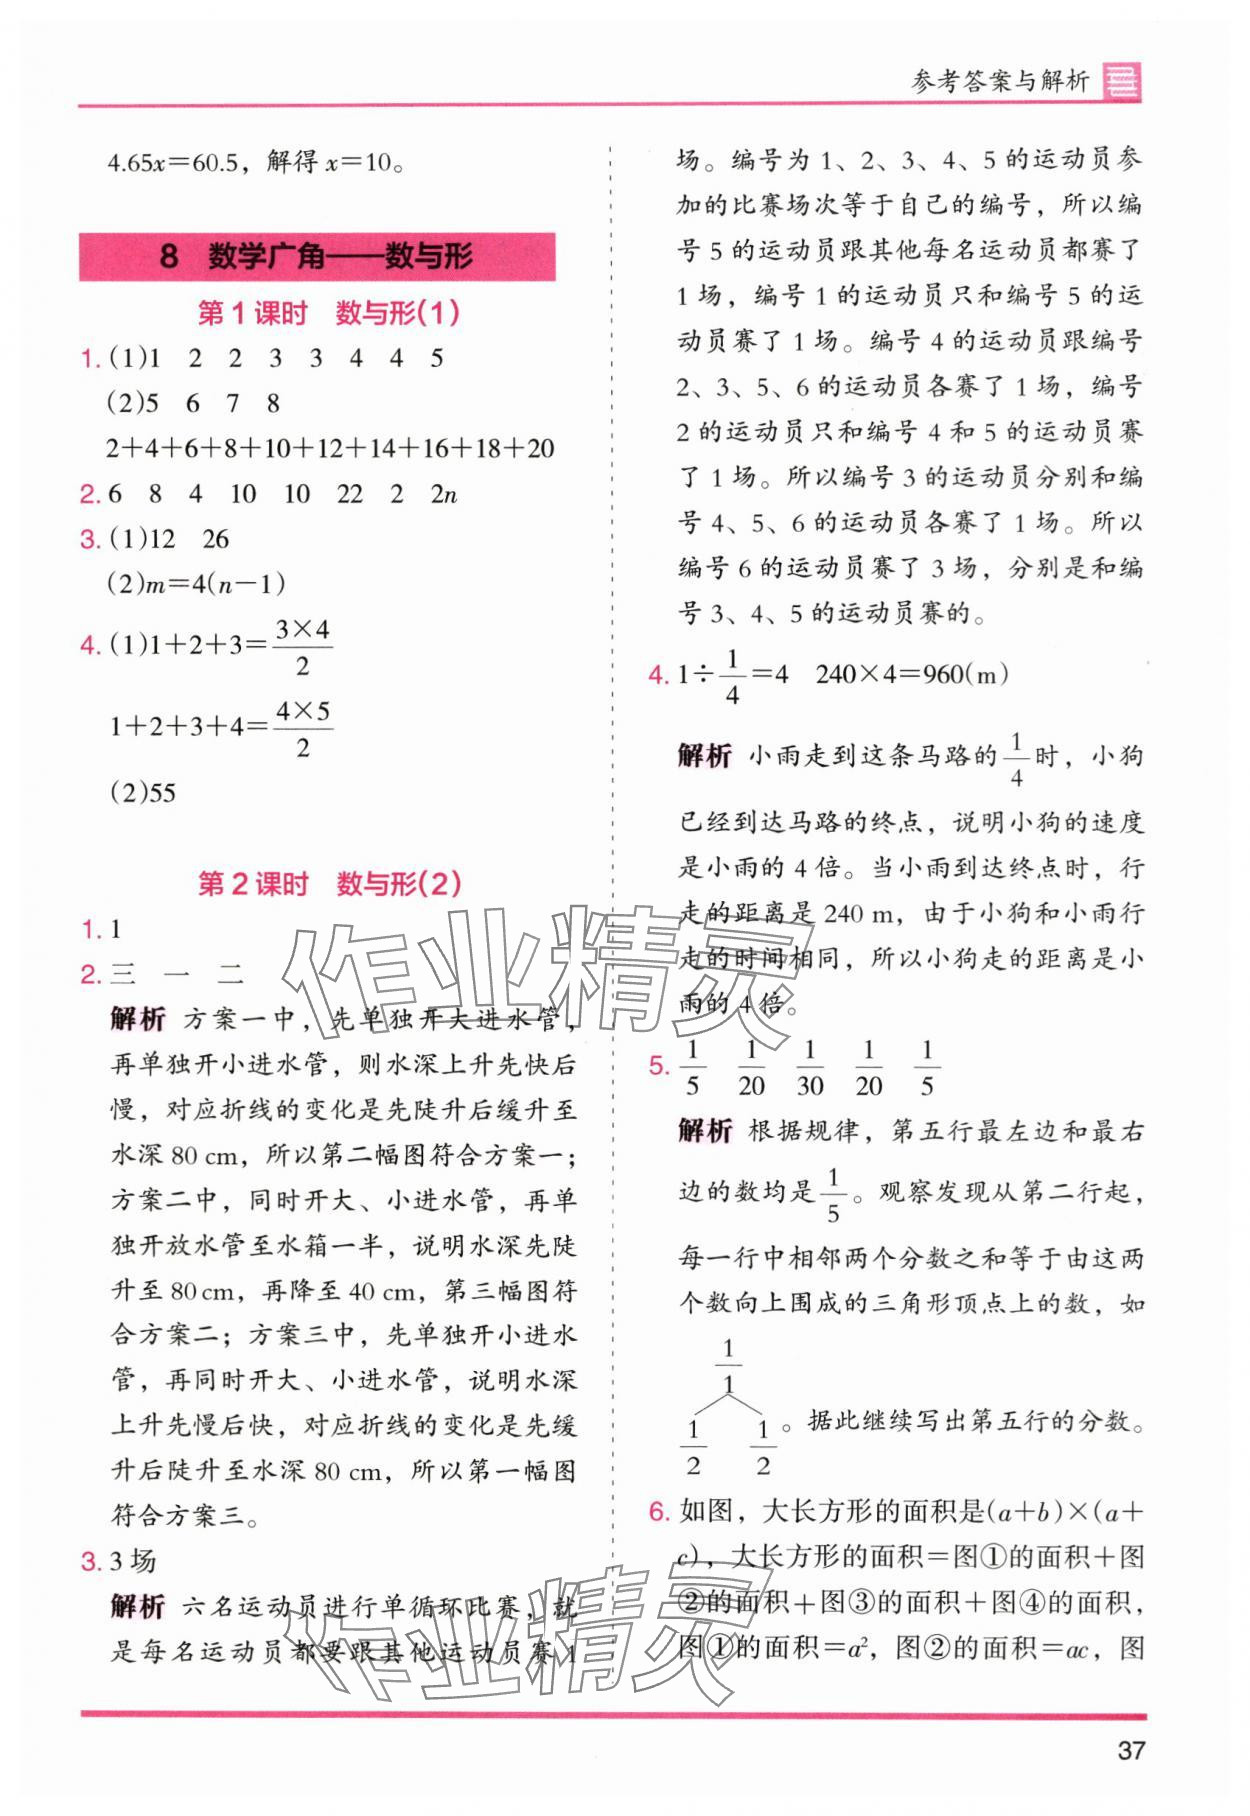 参考答案与解析
4.65x=60.5，解得 x=10。
8 数学广角——数与形
第 1 课时 数与形(1)
1. (1)1 2 2 3 3 4 4 5
(2)5 6 7 8
2+4+6+8+10+12+14+16+18+20
2. 6 8 4 10 10 22 2 2n
3. (1)12 26
(2)m=4(n-1)
4. (1)1+2+3=3×4/2
1+2+3+4=4×5/2
(2)55
第 2 课时 数与形(2)
1. 1
2. 三 一 二
解析 方案一中，先单独开大进水管，
再单独开小进水管，则水深上升先快后
慢，对应折线的变化是先陡升后缓升至
水深 80 cm，所以第二幅图符合方案一；
方案二中，同时开大、小进水管，再单
独开放水管至水箱一半，说明水深先陡
升至 80 cm，再降至 40 cm，第三幅图符
合方案二；方案三中，先单独开小进水
管，再同时开大、小进水管，说明水深
上升先慢后快，对应折线的变化是先缓
升后陡升至水深 80 cm，所以第一幅图
符合方案三。
3. 3 场
解析 六名运动员进行单循环比赛，就
是每名运动员都要跟其他运动员赛 1
场。编号为 1、2、3、4、5 的运动员参
加的比赛场次等于自己的编号，所以编
号 5 的运动员跟其他每名运动员都赛了
1 场，编号 1 的运动员只和编号 5 的运
动员赛了 1 场。编号 4 的运动员跟编号
2、3、5、6 的运动员各赛了 1 场，编号
2 的运动员只和编号 4 和 5 的运动员赛
了 1 场。所以编号 3 的运动员分别和编
号 4、5、6 的运动员各赛了 1 场。所以
编号 6 的运动员赛了 3 场，分别是和编
号 3、4、5 的运动员赛的。
4. 1÷1/4=4 240×4=960(m)
解析 小雨走到这条马路的1/4时，小狗
已经到达马路的终点，说明小狗的速度
是小雨的 4 倍。当小雨到达终点时，行
走的距离是 240 m，由于小狗和小雨行
走的时间相同，所以小狗走的距离是小
雨的 4 倍。
5. 1/5 1/20 1/30 1/20 1/5
解析 根据规律，第五行最左边和最右
边的数均是1/5。观察发现从第二行起，
每一行中相邻两个分数之和等于由这两
个数向上围成的三角形顶点上的数，如
1/1
1/2 1/2。据此继续写出第五行的分数。
6. 如图，大长方形的面积是(a+b)×(a+
c)，大长方形的面积=图①的面积+图
②的面积+图③的面积+图④的面积，
图①的面积=a²，图②的面积=ac，图
37
作业精灵
作业精灵